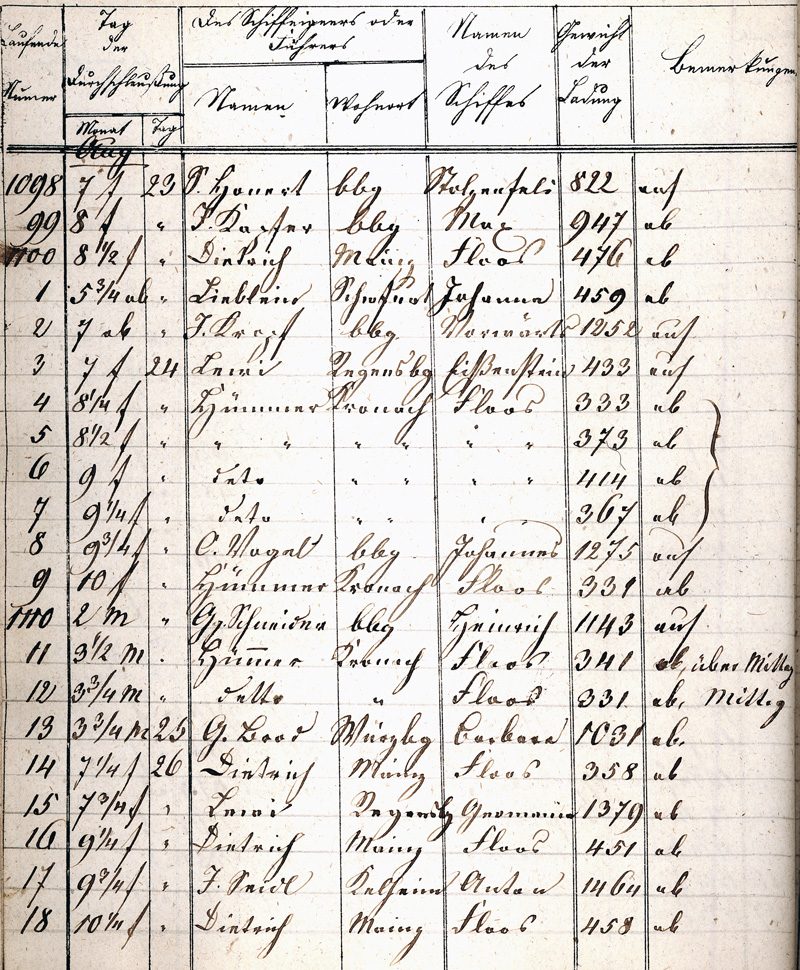 Laufende Numer
Tag der Durchschleußung
Des Schiffeigners oder Führers
Namen des Schiffes
Gewicht der Ladung
Bemerkungen
Monat Tag Namen Wohnort
Aug
1098 7 f 23 S. Honert bbg Stolzenfels 822 auf
99 8 f " J. Kapfer bbg Max 947 ab
1100 8 1/2 f " Dietrich Mainz Floos 476 ab
1 5 3/4 ab " Lieblein Johanna 459 ab
2 7 ab " J. Kropf bbg Vorwärts 1252 auf
3 7 f 24 Lewi Regensbg Eißenstein 433 auf
4 8 1/4 f " Hümmer Kronach Floos 333 ab
5 8 1/2 f " " " " " " " 373 ab
6 9 f " deto " " " " 414 ab
7 9 1/4 f " deto " " " " 367 ab
8 9 3/4 f " C. Vogel bbg Johannes 1275 auf
9 10 f " Hümmer Kronach Floos 331 ab
1110 2 m " Gg. Schneider bbg Heinrich 1143 auf
11 3 1/2 m " Hüm̅er Kronach Floos 341 ab, über Mittag
12 3 3/4 m " detto " Floos 331 ab, Mittag
13 3 3/4 m 25 G. Brod Würzbg Barbara 1031 ab.
14 7 1/4 f 26 Dietrich Mainz Floos 358 ab
15 7 3/4 f " Lewi Regensbg Germania 1379 ab
16 9 1/4 f " Dietrich Mainz Floos 451 ab
17 9 3/4 f " J. Seidl Kelheim Anton 1464 ab
18 10 1/4 f " Dietrich Mainz Floos 458 ab